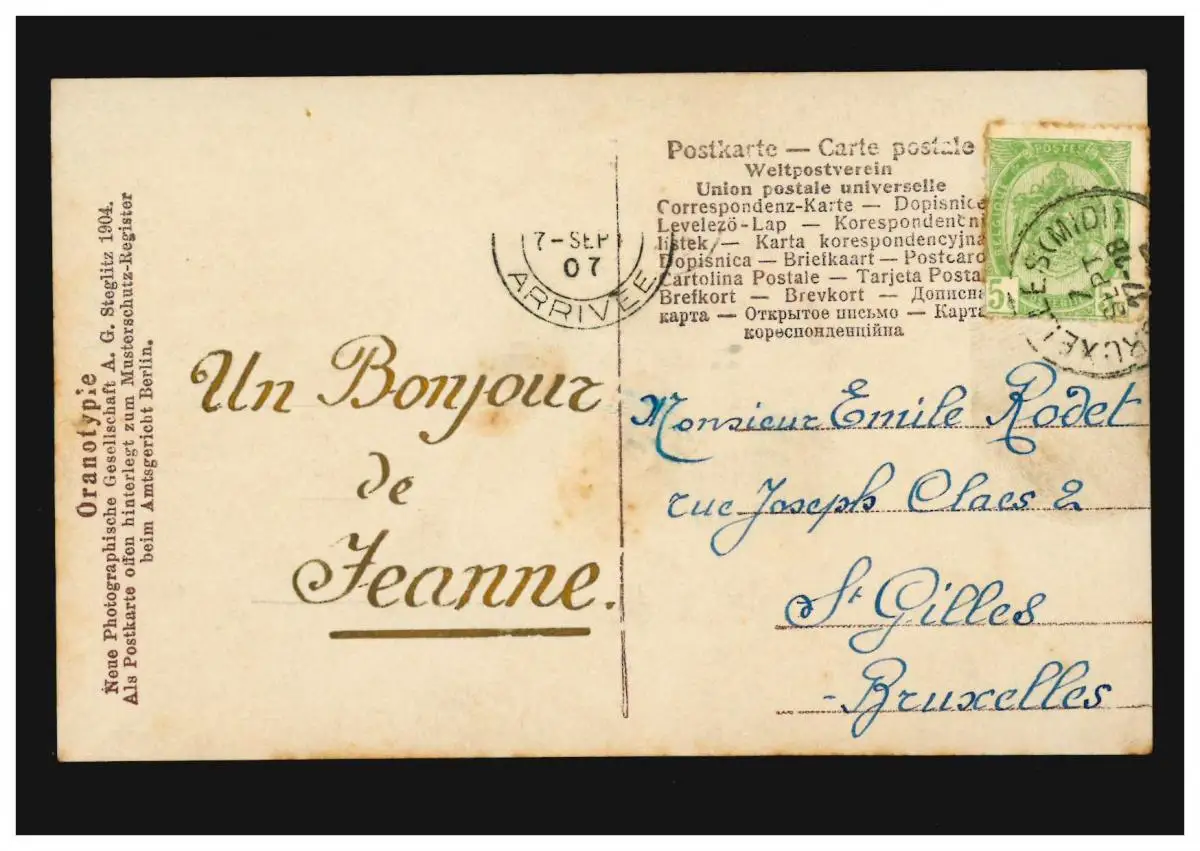 Oranotypie
Neue Photographische Gesellschaft A. G. Steglitz 1904.
Als Postkarte offen hinterlegt zum Musterschutz-Register
beim Amtsgericht Berlin.
7-SEPT
07
ARRIVÉE
Un Bonjour
de
Jeanne.
Postkarte — Carte postale
Weltpostverein
Union postale universelle
Correspondenz-Karte — Dopisnice
Levelező-Lap — Korespondenčni
listek — Karta korespondencyjna
Dopisnica — Briefkaart — Postcard
Cartolina Postale — Tarjeta Posta
Brefkort — Brevkort — Дописна
карта — Открытое письмо — Карта
кореспонденційна
POSTES
BELGIQUE
5
BRUXELLES(MIDI)
SEPT
Monsieur Emile Rodet
rue Joseph Claes 2
St Gilles
-Bruxelles